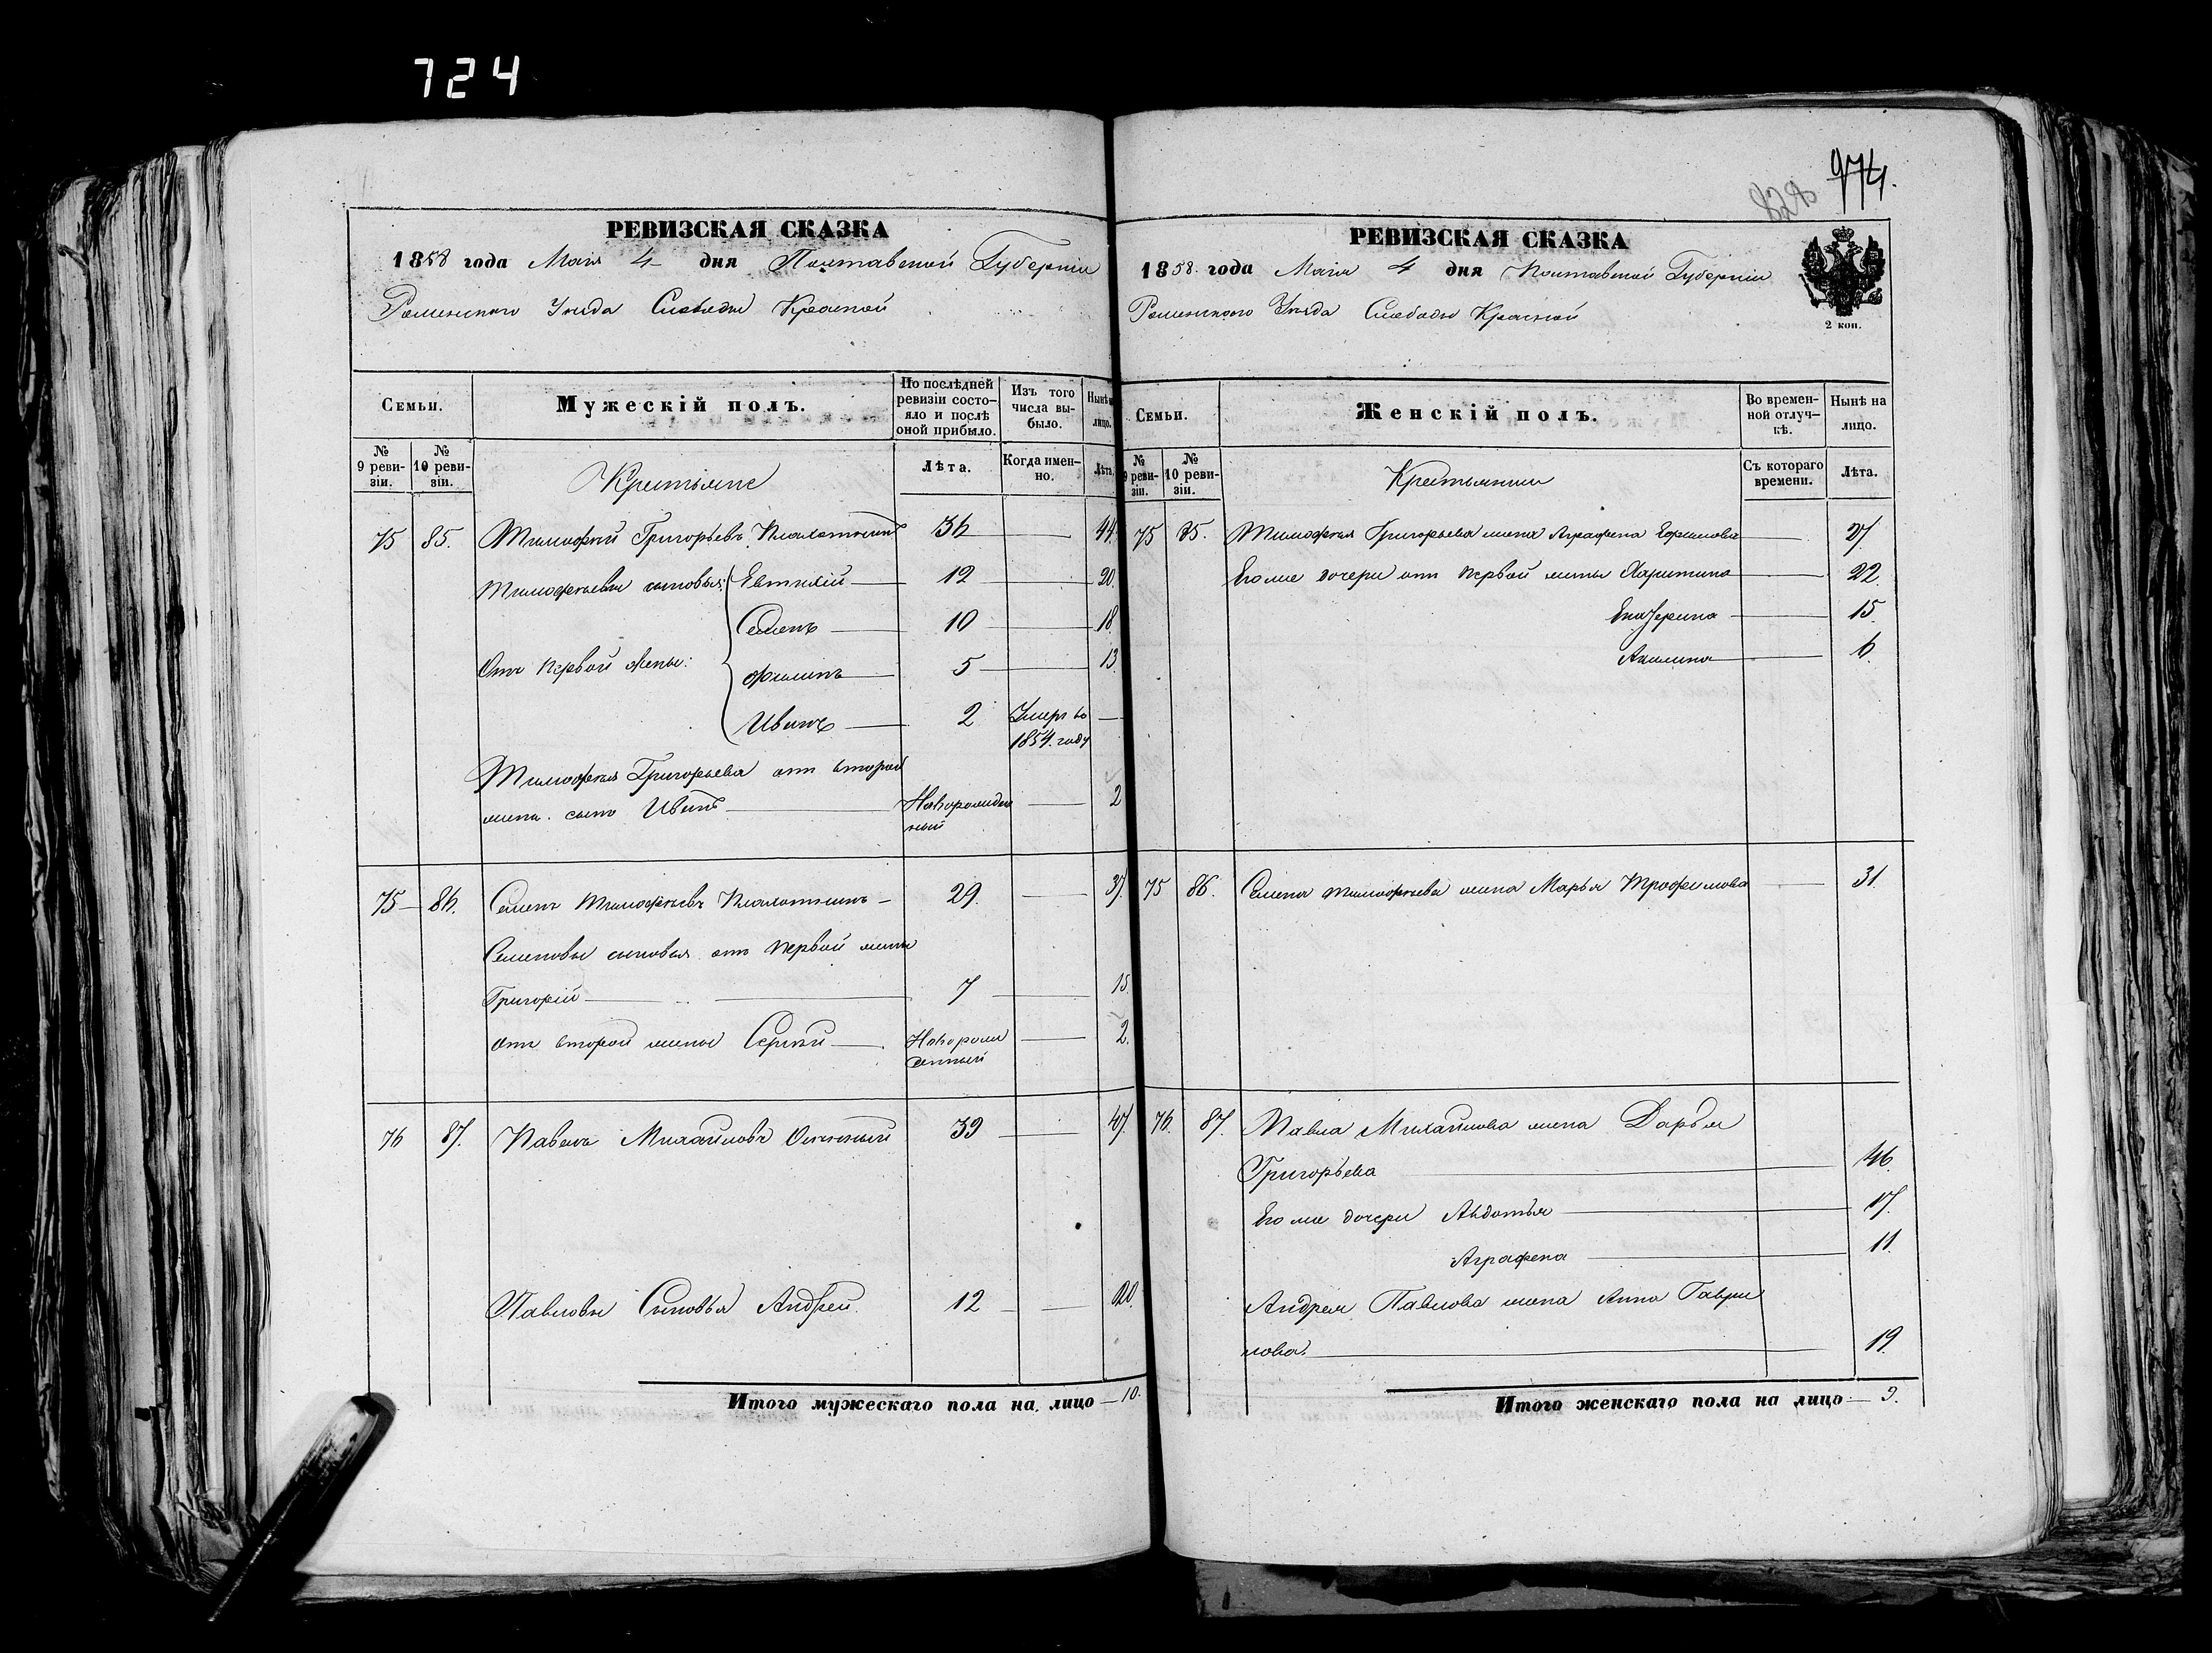 724
РЕВИЗСКАЯ СКАЗКА
1858 года Маія 4 дня Полтавской Губерніи
Роменского Уѣзда Слободы Красной
Семьи.
Мужескій полъ.
По послѣдней ревизіи состояло и послѣ оной прибыло.
Изъ того числа выбыло.
Нынѣ на лицо.
№ 9 ревизіи.
№ 10 ревизіи.
Крестьяне
Лѣта.
Когда именно.
Лѣта.
75 85. Тимофей Григорьевъ 36 — 44.
Тимофеевы сыновья: Евтихій — 12 — 20.
Семенъ — 10 — 18.
Отъ первой жены: Филипъ — 5 — 13
Иванъ — 2 Умеръ въ —
1854. году
Тимофея Григорьева отъ второй
жены сынъ Иванъ — Новорожден — 2
ный
75 — 86. Семенъ Тимофеевъ — 29. — 37.
Семеновы сыновья отъ первой жены
Григорій — 7 — 15.
отъ второй жены Сергей — Новорож — 2.
денный
76 87. Павелъ Михайловъ 39 — 47.
Павловы Сыновья Андрей. 12 — 20.
Итого мужескаго пола на лицо — 10.
974.
828
РЕВИЗСКАЯ СКАЗКА
1858. года Маія 4 дня Полтавской Губерніи
Роменского Уѣзда Слободы Красной
2 коп.
Семьи.
Женскій полъ.
Во временной отлучкѣ.
Нынѣ на лицо.
№ 9 ревизіи.
№ 10 ревизіи.
Крестьянки
Съ котораго времени.
Лѣта.
75 85. Тимофея Григорьева жена Аграфена — 27.
Его же дочери отъ первой жены Харитина — 22.
Екатерина — 15.
Акилина — 6.
75 86. Семена Тимофеева жена Марья Трофимова — 31.
76. 87. Павла Михайлова жена Дарья
Григорьева — 46.
Его же дочери Авдотья — 17.
Аграфена — 11.
Андрея Павлова жена Анна Гаври
лова. — 19.
Итого женскаго пола на лицо — 9.